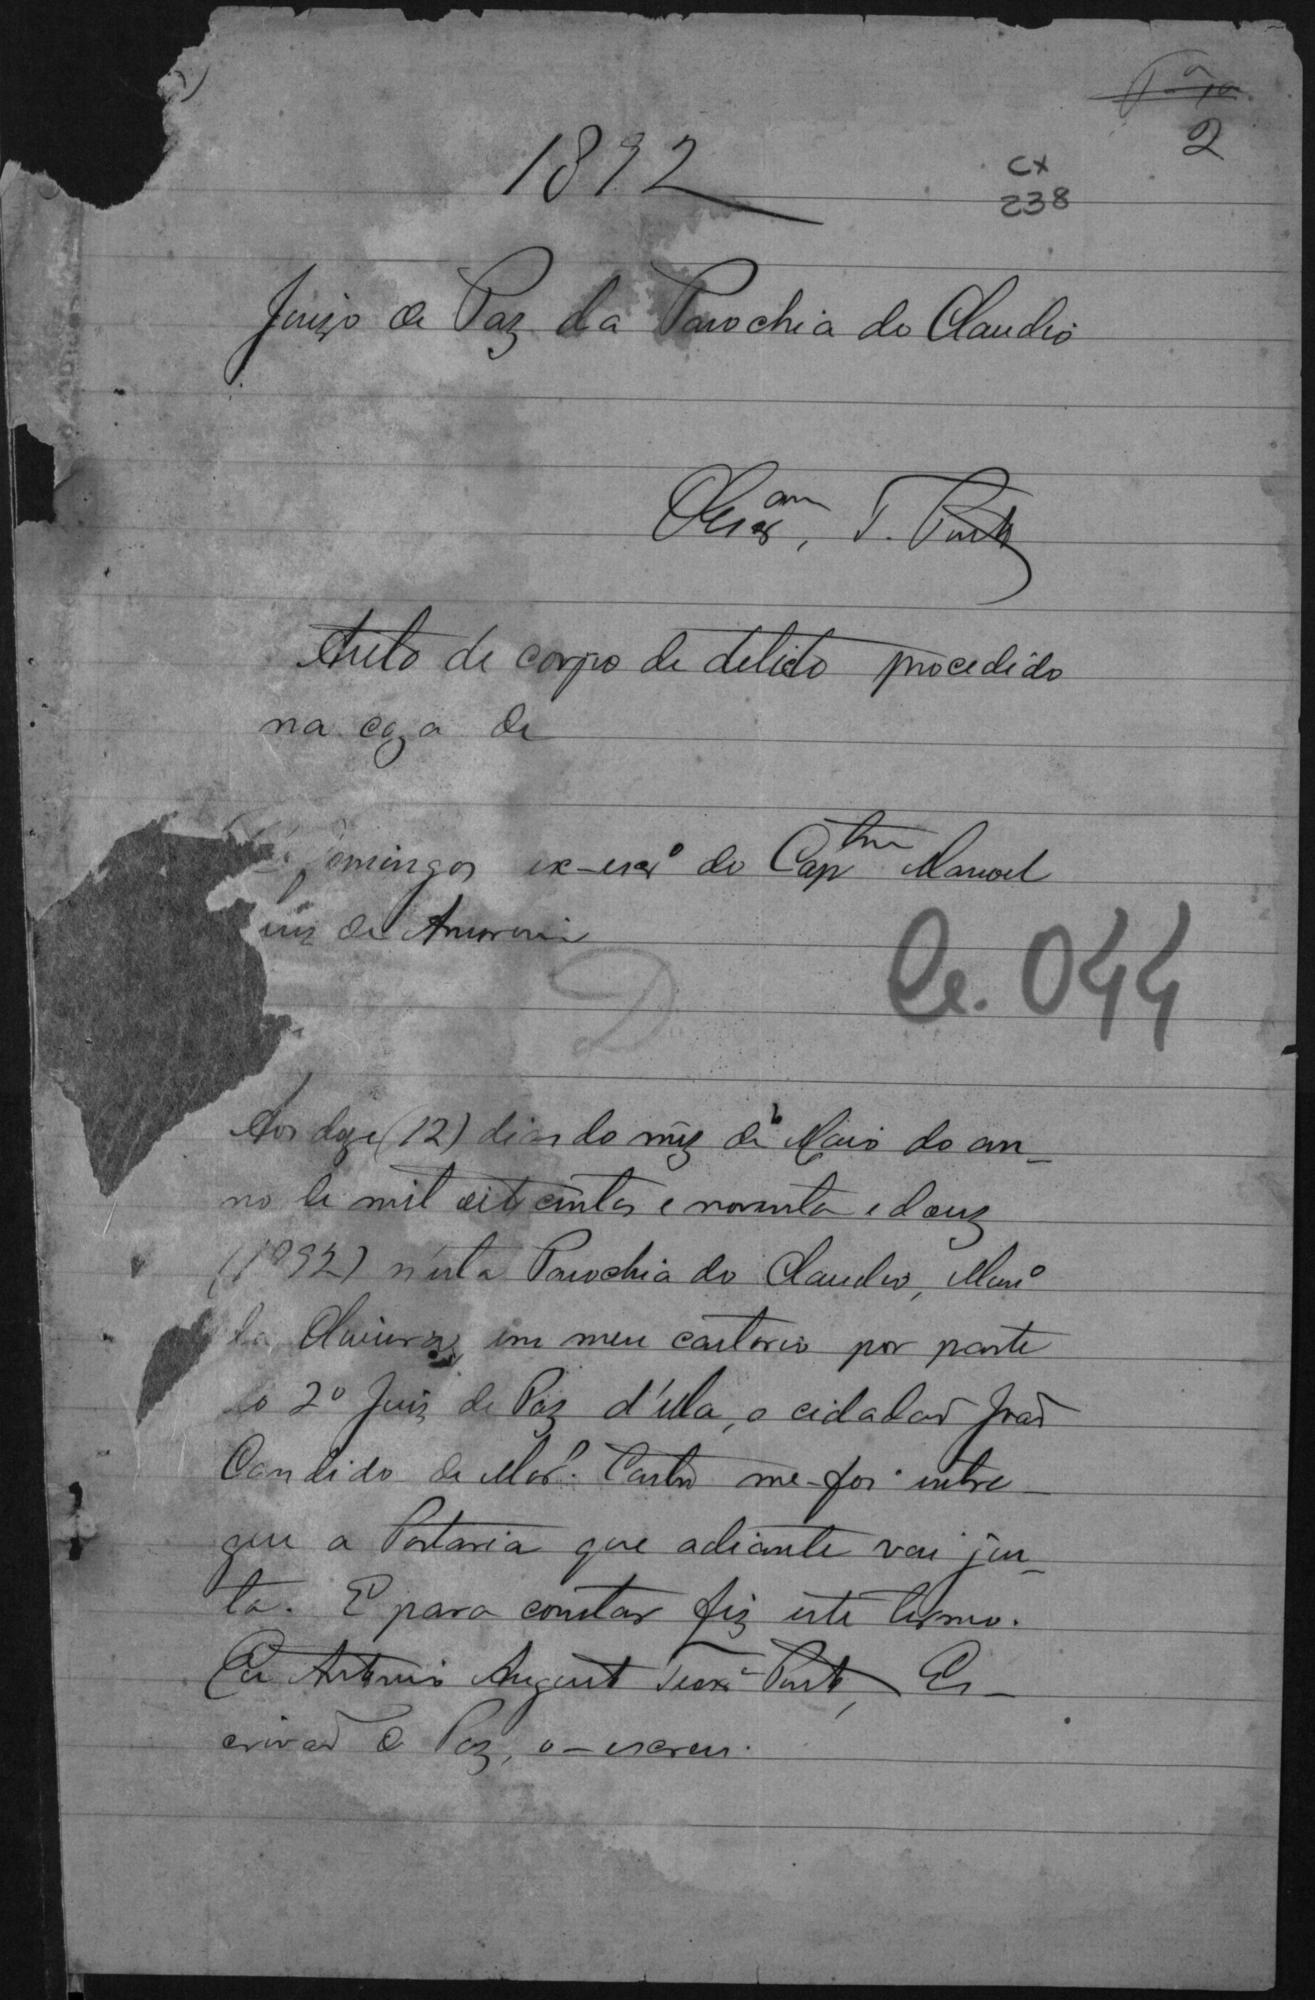 2
1892
CX
238
Juizo de Paz da Parochia do Claudio
Escr.am, T. Porto
Auto de corpo de delicto procedido
na caza de
Domingos ex-escrº do Capm Manoel
de Amorim
Ce. 044
D
Aos doze (12) dias do mez de Maio do an-
no de mil oit centos e noventa e douz
(1892) n'esta Parochia do Claudio, Munº
da Oliveira, em meu cartorio por parte
do 2º Juiz de Paz d'ella, o cidadão João
Candido de Castro me-foi entre-
gue a Portaria que adiante vai jun-
ta. E para constar fiz este termo.
Eu Antonio Augusto Teixrª Porto, Es-
crivão de Paz, o-escrevi.